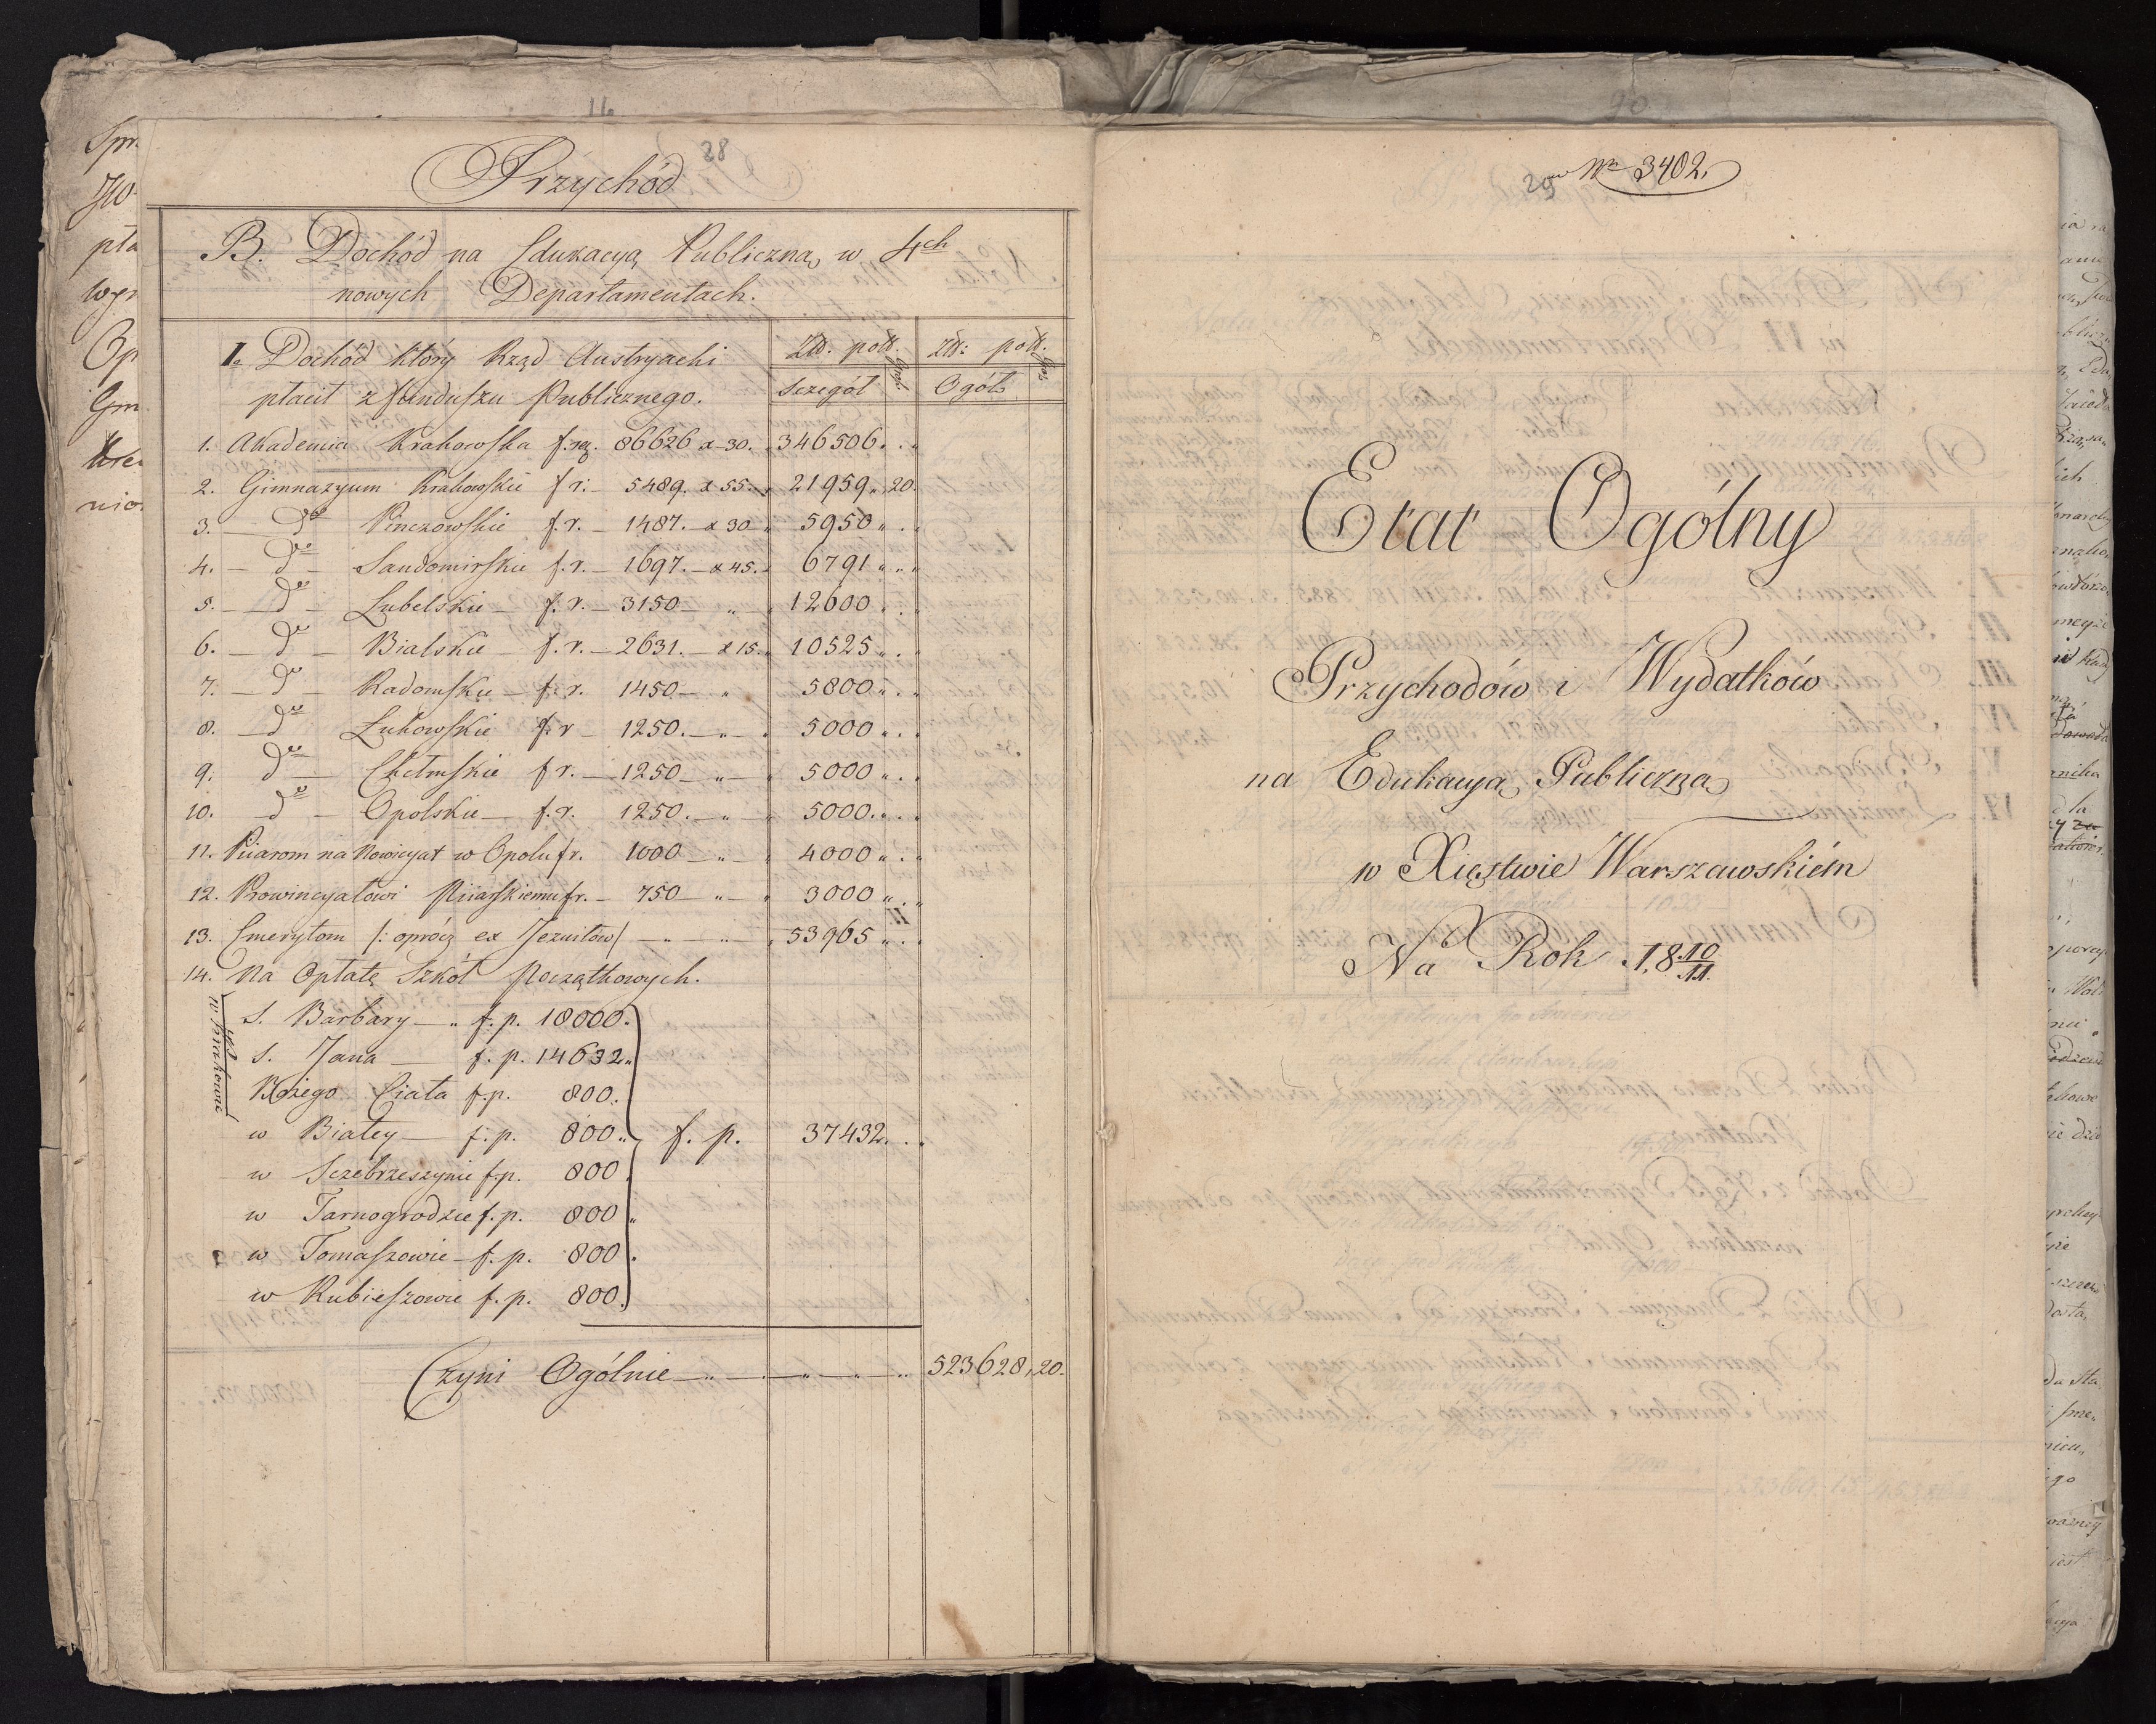 28
Przychód
B. Dochód na Edukacyą Publiczną w 4ch
nowych Departamentach.
I. Dochód który Rząd Austryacki Złł. pols. Gro. Złł: pols. Gro.
płacił z funduszu Publicznego. Sczegół Ogół
1. Akademia Krakowska f. rez. 86626 x 30. 346506.
2. Gimnazyum Krakowskie f r: 5489. x 55. 21959 „ 20.
3. do Pinczowskie f. r. 1487. x 30 5950
4. do Sandomirskie f. r. 1697. x 45. 6791
5. do Lubelskie f. r. 3150 12600
6. do Bialskie f. r. 2631. x 15. 10525
7. do Radomskie f. r. 1450 5800
8. do Łukowskie f r 1250. 5000
9. do Chełmskie f r. 1250 5000
10. do Opolskie f. r. 1250. 5000.
11. Piiarom na Nowicyat w Opolu fr. 1000 4000
12. Prowincyałowi Piiarskiemu fr. 750 3000
13. Emerytom /: oprócz ex Jezuitów/ 53965
14. Na Opłatę Szkół Początkowych.
w Krakowie
S. Barbary f. p. 18000.
S. Jana f. p. 14632
Bożego Ciała f. p. 800.
w Białey f. p. 800 f. p. 37432.
w Sczebrzeszynie f.p. 800
w Tarnogrodzie f. p. 800
w Tomaszowie f. p. 800
w Rubieszowie f. p. 800.
Czyni Ogólnie 523628, 20.
29
3402.
Etat Ogólny
Przychodów i Wydatków
na Edukacyą Publiczną
w Xięstwie Warszawskiém
Na Rok 18 10/11.